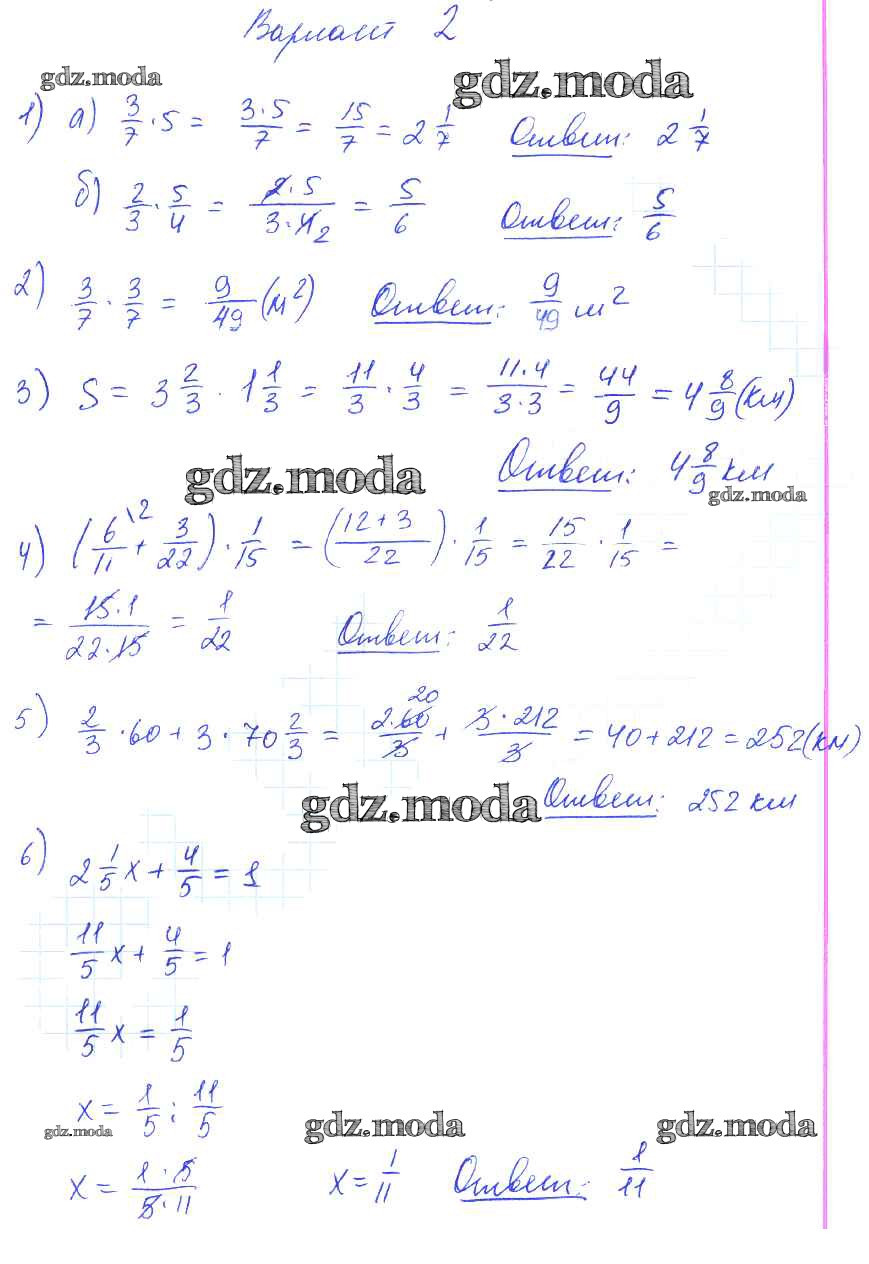 Вариант 2
gdz.moda
gdz.moda
1) а) 3/7 · 5 = 3·5/7 = 15/7 = 2 1/7 Ответ: 2 1/7
б) 2/3 · 5/4 = 2·5/3·4 2 = 5/6 Ответ: 5/6
2) 3/7 · 3/7 = 9/49 (м²) Ответ: 9/49 м²
3) S = 3 2/3 · 1 1/3 = 11/3 · 4/3 = 11·4/3·3 = 44/9 = 4 8/9 (км)
gdz.moda
Ответ: 4 8/9 км
gdz.moda
4) (6/11 \2 + 3/22) · 1/15 = (12+3/22) · 1/15 = 15/22 · 1/15 =
= 15·1/22·15 = 1/22 Ответ: 1/22
5) 2/3 · 60 + 3 · 70 2/3 = 2·60 20/3 + 3·212/3 = 40 + 212 = 252 (км)
gdz.moda
Ответ: 252 км
6) 2 1/5 x + 4/5 = 1
11/5 x + 4/5 = 1
11/5 x = 1/5
x = 1/5 : 11/5
gdz.moda
gdz.moda
gdz.moda
x = 1·5/5·11 x = 1/11 Ответ: 1/11